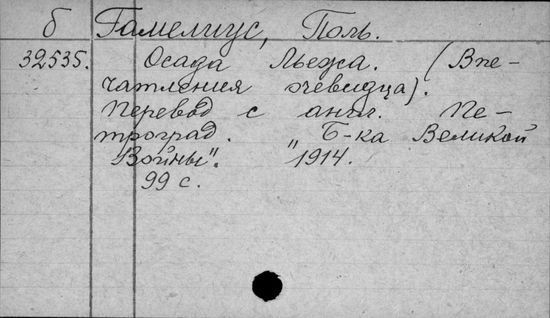 б Гамелиус, Поль.
32535. Осада Льежа. (Впе-
чатления очевидца).
Перевод с англ. Пе-
троград. „Б-ка Великой
Войны". 1914.
99 с.